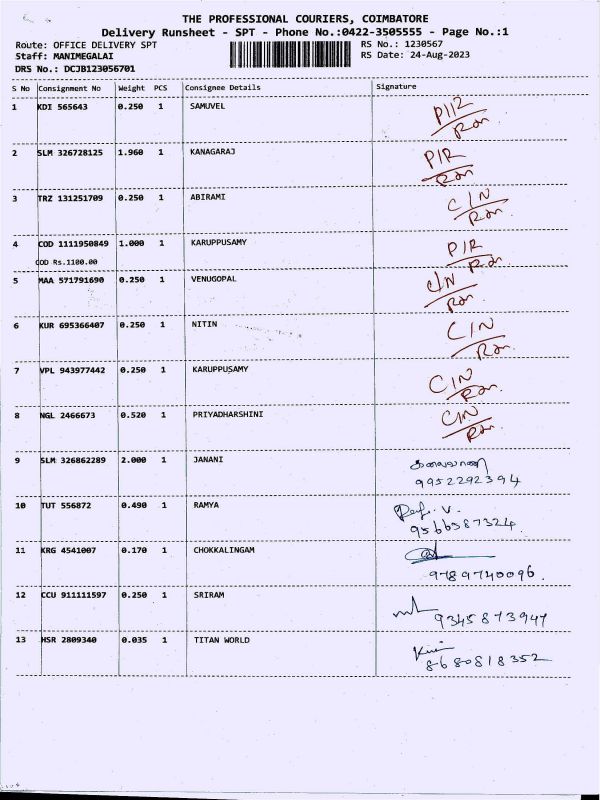 THE PROFESSIONAL COURIERS, COIMBATORE
Delivery Runsheet - SPT - Phone No.:0422-3505555 - Page No.:1
Route: OFFICE DELIVERY SPT RS No.: 1230567
Staff: MANIMEGALAI RS Date: 24-Aug-2023
DRS No.: DCJB123056701
S No Consignment No Weight PCS Consignee Details Signature
1 KDI 565643 0.250 1 SAMUVEL
2 SLM 326728125 1.960 1 KANAGARAJ P/R
3 TRZ 131251709 0.250 1 ABIRAMI C/N
4 COD 1111950849 1.000 1 KARUPPUSAMY P/R
COD Rs.1100.00
5 MAA 571791690 0.250 1 VENUGOPAL C/N
6 KUR 695366407 0.250 1 NITIN C/N
7 VPL 943977442 0.250 1 KARUPPUSAMY C/N
8 NGL 2466673 0.520 1 PRIYADHARSHINI C/N
9 SLM 326862289 2.000 1 JANANI
9952292394
10 TUT 556872 0.490 1 RAMYA
9566587324
11 KRG 4541007 0.170 1 CHOKKALINGAM
9789740096.
12 CCU 911111597 0.250 1 SRIRAM
9345873947
13 HSR 2809340 0.035 1 TITAN WORLD
8680818352